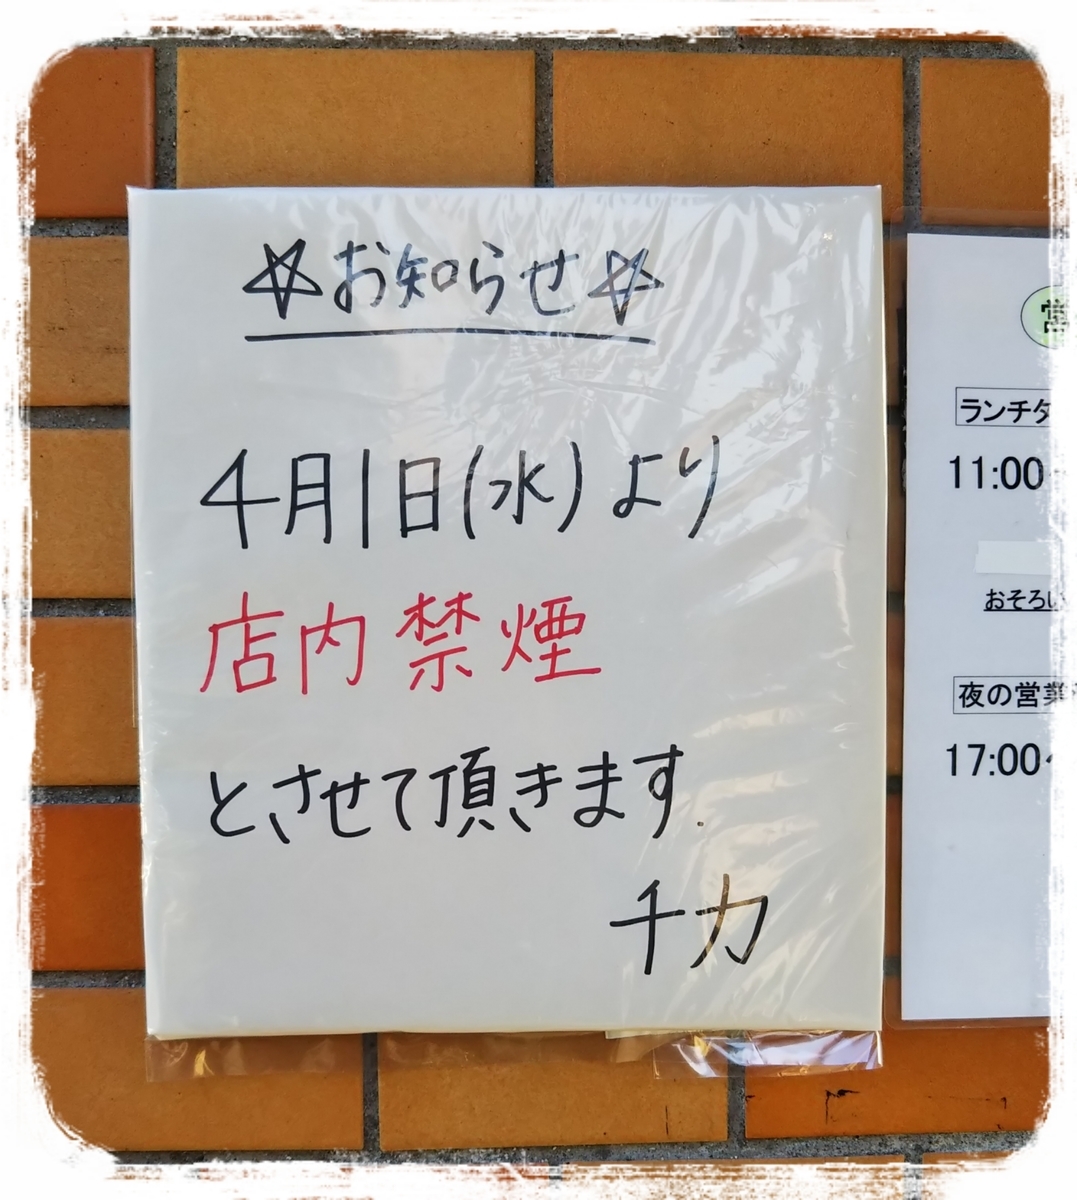 ☆お知らせ☆
4月1日(水)より
店内禁煙
とさせて頂きます.
千力
営
ランチタ
11:00
おそろい
夜の営業
17:00~